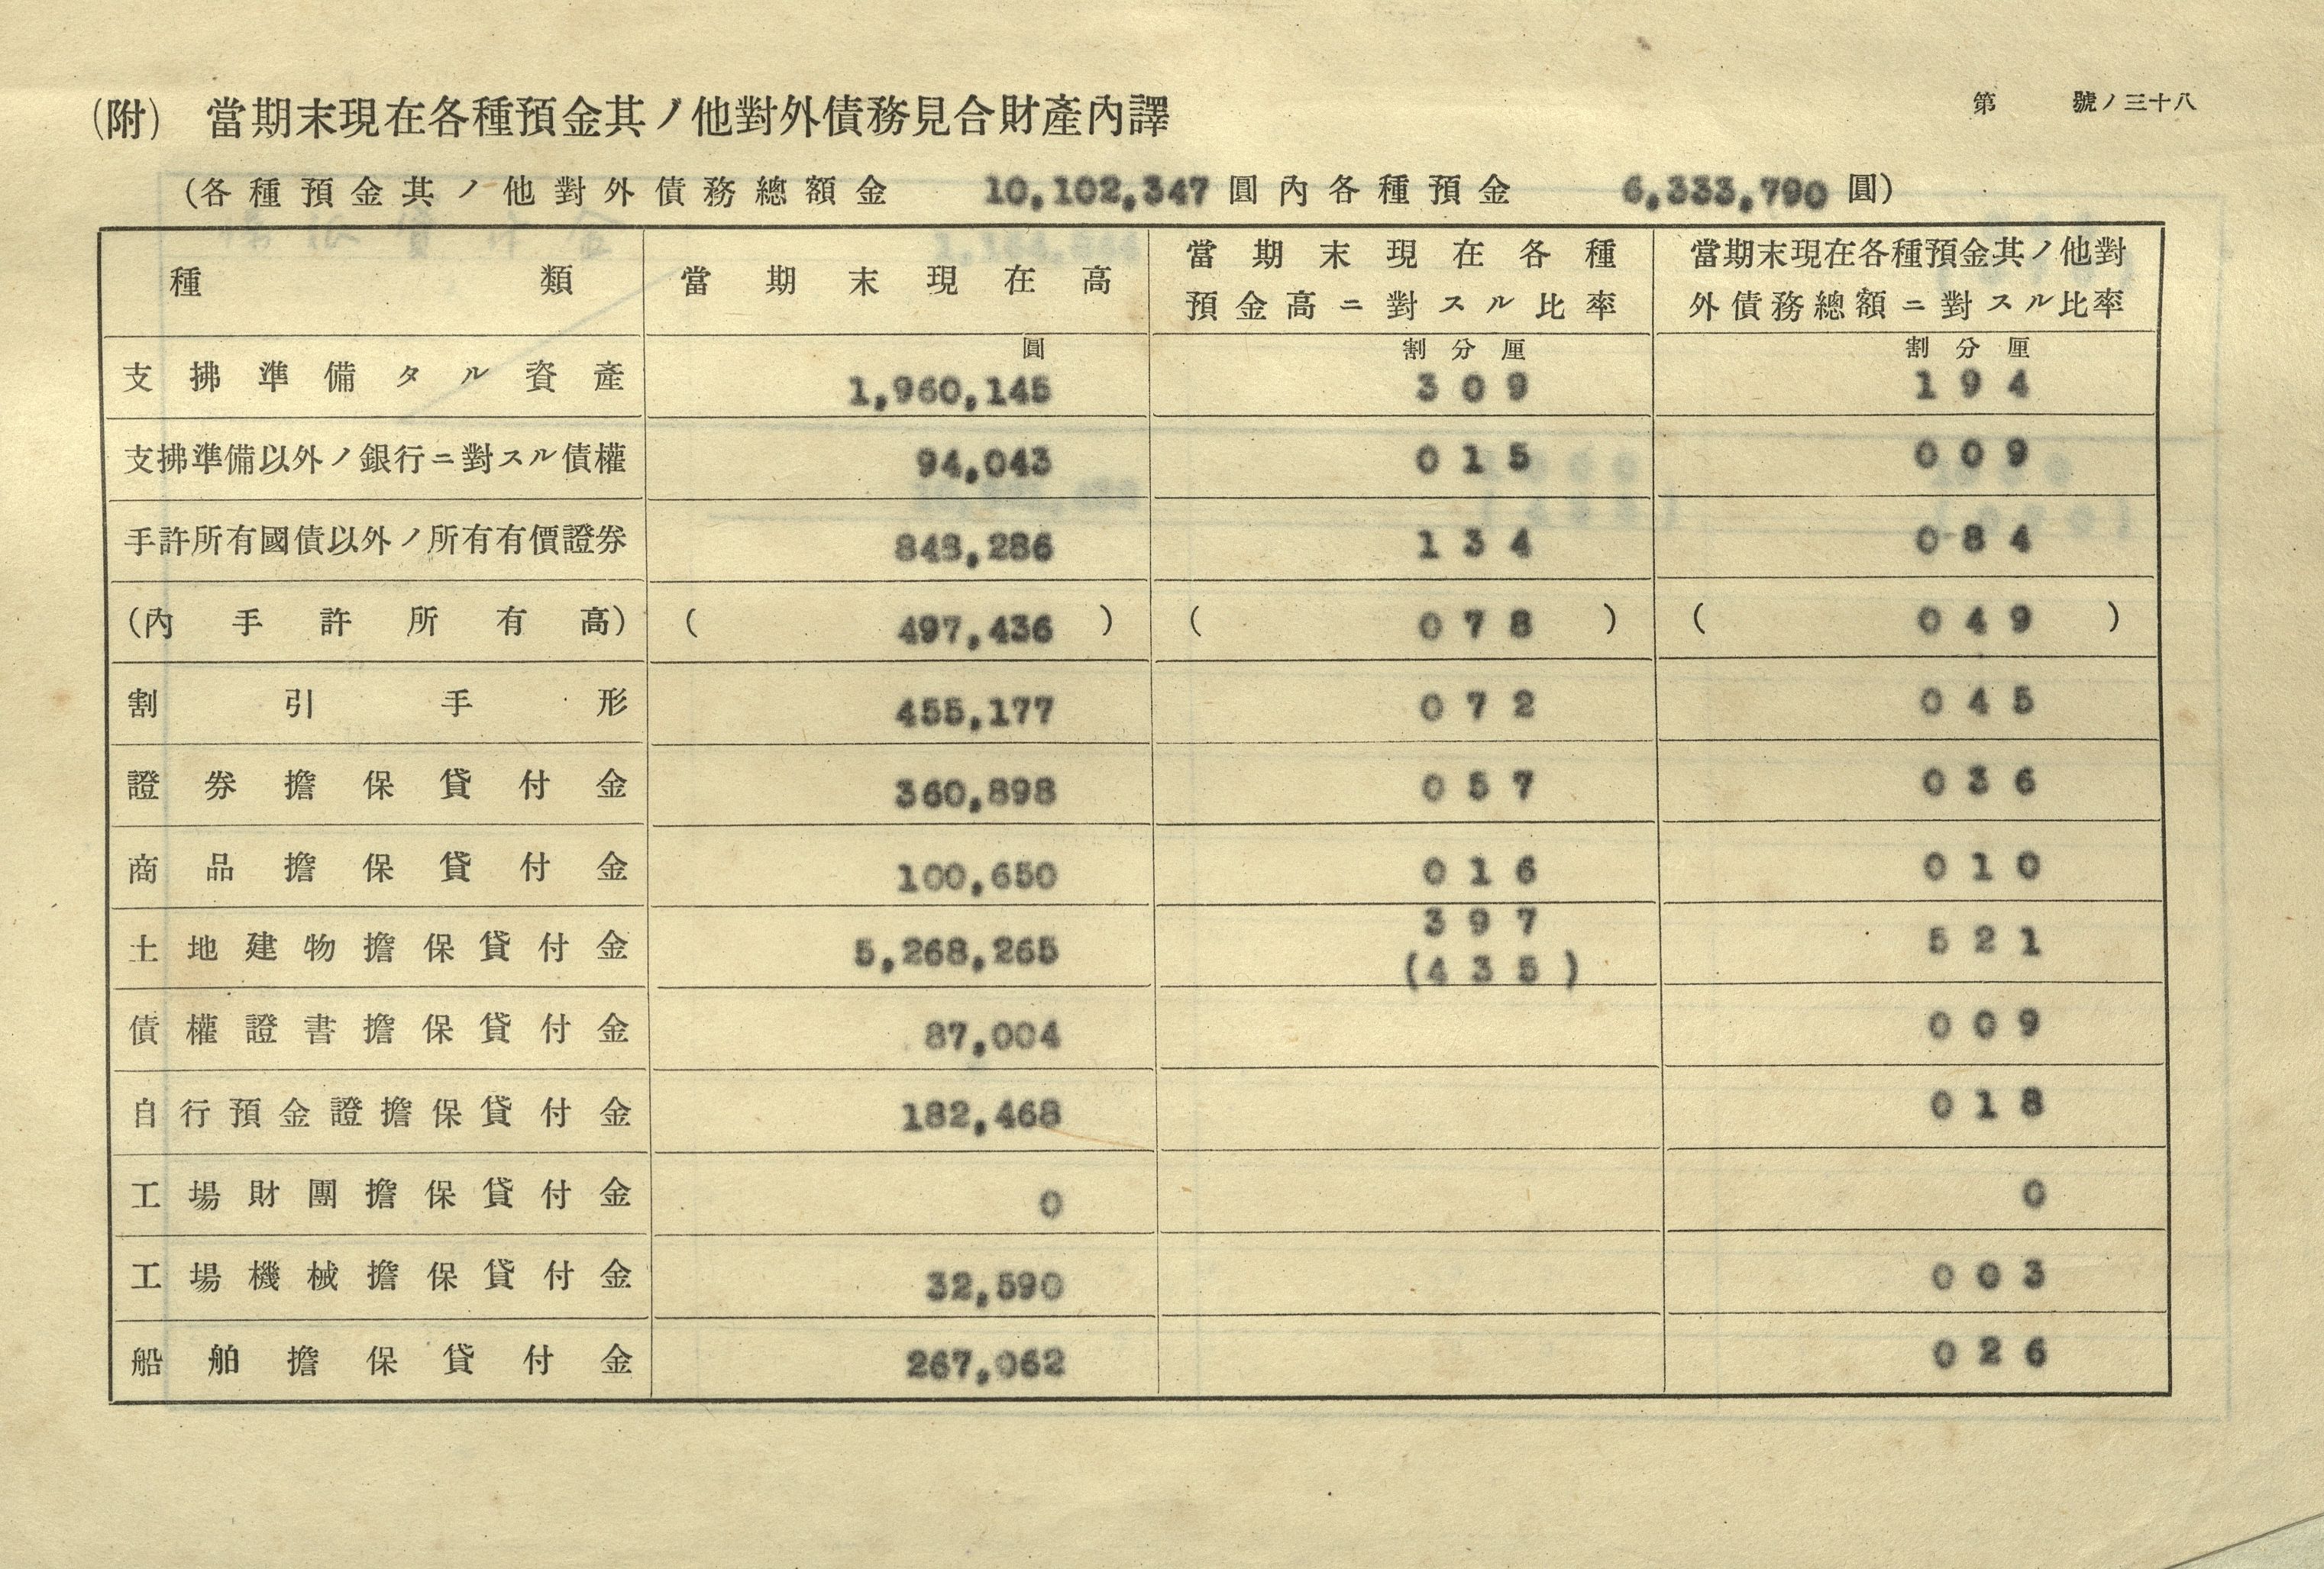 第　號ノ三十八
(附)　當期末現在各種預金其ノ他對外債務見合財產內譯
(各種預金其ノ他對外債務總額金　10,102,347圓內各種預金　6,333,790圓)
種類　當期末現在高　當期末現在各種預金高ニ對スル比率　當期末現在各種預金其ノ他對外債務總額ニ對スル比率
圓　割分厘　割分厘
支拂準備タル資產　1,960,145　309　194
支拂準備以外ノ銀行ニ對スル債權　94,043　015　009
手許所有國債以外ノ所有有價證券　848,286　134　084
(內手許所有高)　(497,436)　(078)　(049)
割引手形　455,177　072　045
證券擔保貸付金　360,898　057　036
商品擔保貸付金　100,650　016　010
土地建物擔保貸付金　5,268,265　397　(435)　521
債權證書擔保貸付金　87,004　009
自行預金證擔保貸付金　182,468　018
工場財團擔保貸付金　0　0
工場機械擔保貸付金　32,590　003
船舶擔保貸付金　267,062　026